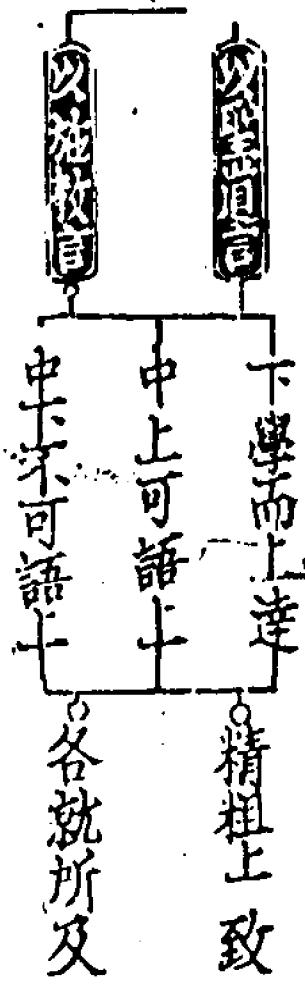 以聖道言
以施教言
下學而上達
中上可語上
中下不可語上
精粗上致
各就所及